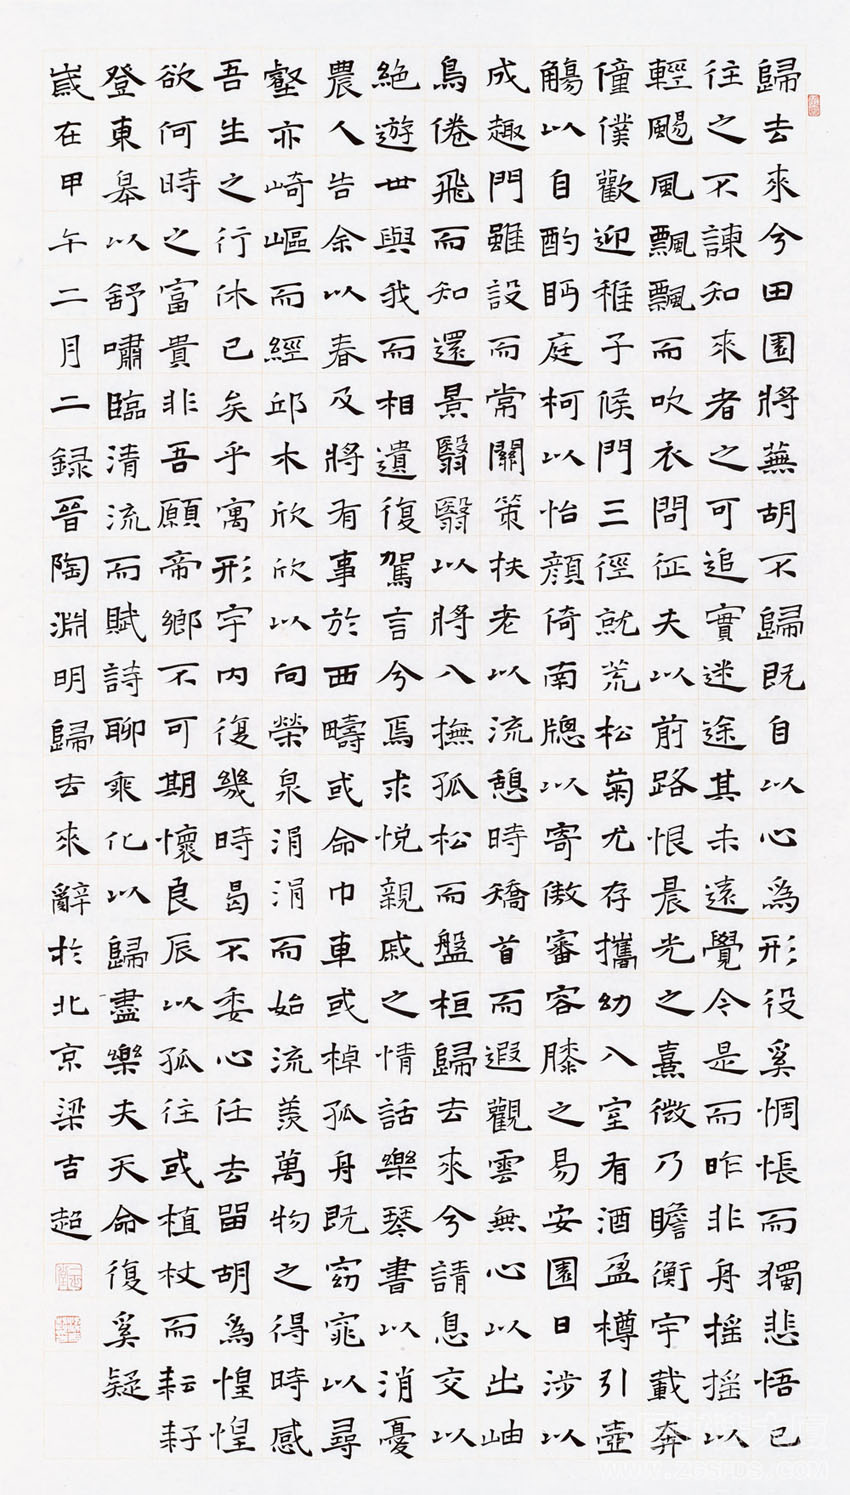 歸去來兮田園將蕪胡不歸既自以心為形役奚惆悵而獨悲悟已
往之不諫知來者之可追實迷途其未遠覺今是而昨非舟搖搖以
輕颺風飄飄而吹衣問征夫以前路恨晨光之熹微乃瞻衡宇載奔
僮僕歡迎稚子候門三徑就荒松菊尤存攜幼入室有酒盈樽引壺
觴以自酌眄庭柯以怡顏倚南牕以寄傲審容膝之易安園日涉以
成趣門雖設而常關策扶老以流憩時矯首而遐觀雲無心以出岫
鳥倦飛而知還景翳翳以將入撫孤松而盤桓歸去來兮請息交以
絕遊世與我而相遺復駕言兮焉求悅親戚之情話樂琴書以消憂
農人告余以春及將有事於西疇或命巾車或棹孤舟既窈窕以尋
壑亦崎嶇而經邱木欣欣以向榮泉涓涓而始流羨萬物之得時感
吾生之行休已矣乎寓形宇內復幾時曷不委心任去留胡為惶惶
欲何時之富貴非吾願帝鄉不可期懷良辰以孤往或植杖而耘耔
登東皋以舒嘯臨清流而賦詩聊乘化以歸盡樂夫天命復奚疑
歲在甲午二月二錄晉陶淵明歸去來辭於北京梁吉超